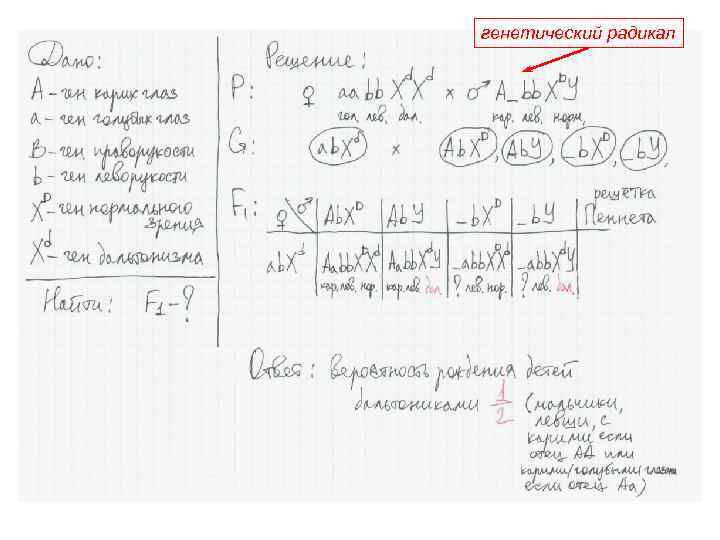 генетический радикал
Дано:
A – ген карих глаз
a – ген голубых глаз
B – ген праворукости
b – ген леворукости
Xᴰ – ген нормального
зрения
Xᵈ – ген дальтонизма
Найти: F₁ – ?
Решение:
P: ♀ aabbXᵈXᵈ × ♂ A_bbXᴰY
гол. лев. дал. кар. лев. норм.
G: abXᴰ × AbXᴰ, AbY, _bXᴰ, _bY,
F₁: ♀ ♂ AbXᴰ AbY _bXᴰ _bY
решётка
Пеннета
abXᵈ AabbXᴰXᵈ AabbXᵈY _abbXᴰXᵈ _abbXᵈY
кар. лев. нор. кар. лев. дал. ? лев. нор. ? лев. дал.
Ответ: вероятность рождения детей
дальтониками 1/2 (мальчики,
левши, с
карими если
отец AA или
карими/голубыми глазами
если отец Aa)